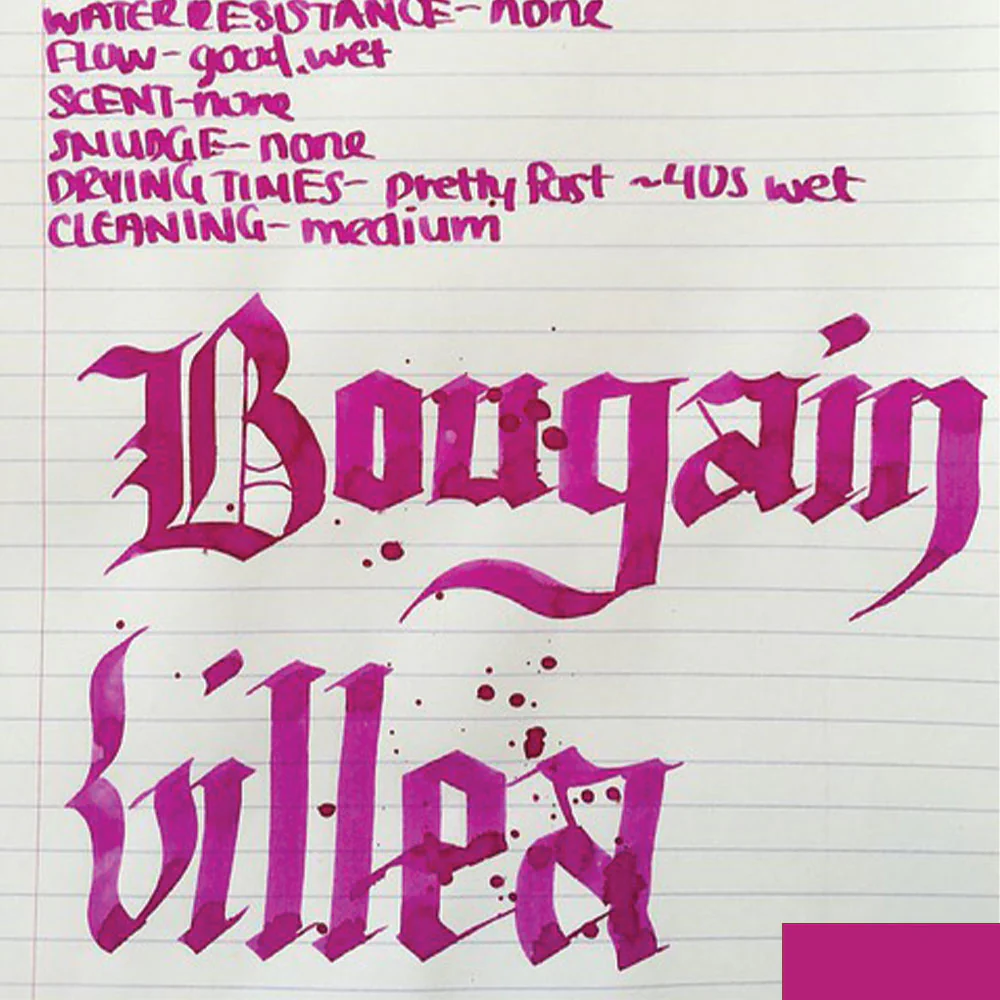 WATER RESISTANCE- none
FLOW- good, wet
SCENT-none
SMUDGE- none
DRYING TIMES- pretty fast ~40s wet
CLEANING- medium
Bougain
villea